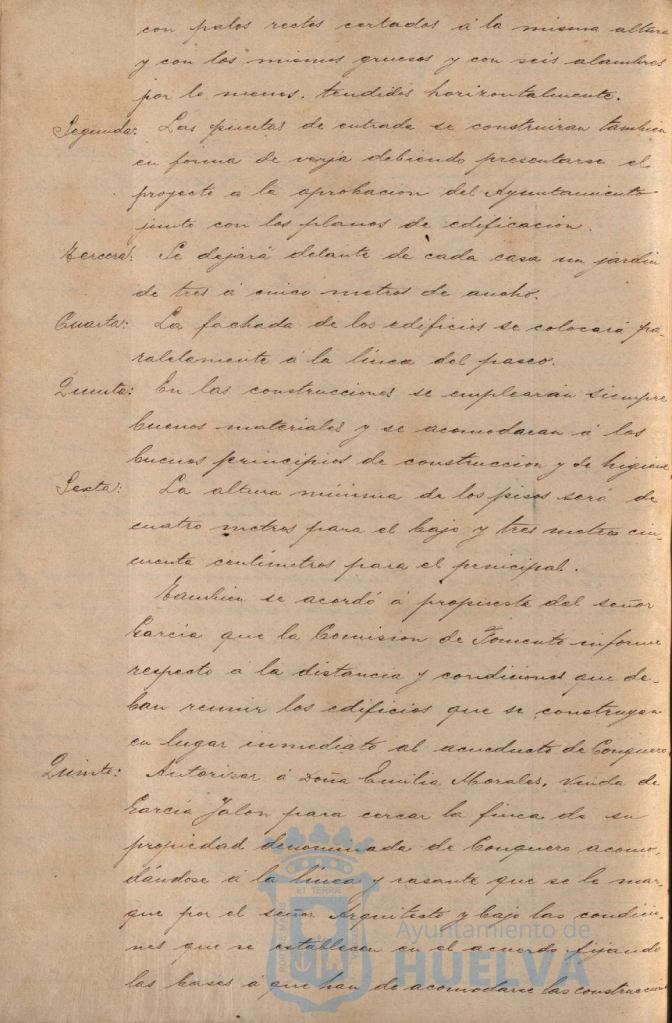 con palos rectos cortados á la misma altura
y con los mismos gruesos y con seis alambres
por lo menos, tendidos horizontalmente.
Segunda: Las puertas de entrada se construiran tambien
en forma de verja debiendo presentarse el
proyecto a la aprobacion del Ayuntamiento
junto con los planos de edificación.
Tercera: Se dejará delante de cada casa un jardin
de tres á cinco metros de ancho.
Cuarta: La fachada de los edificios se colocará pa-
ralelamente á la línea del paseo.
Quinta: En las construcciones se emplearán siempre
buenos materiales y se acomodaran á los
buenos principios de construccion y de higiene
Sexta: La altura mínima de los pisos será de
cuatro metros para el bajo y tres metros cin-
cuenta centímetros para el principal.
Tambien se acordó á propuesta del señor
García que la Comision de Fomento informe
respecto á la distancia y condiciones que de-
ban reunir los edificios que se construyan
en lugar inmediato al acueducto de Conquero.
Quinto: Autorizar á Doña Emilia Morales, Viuda de
García Jalon para cercar la finca de su
propiedad denominada de Conquero acomo-
dándose á la línea y rasante que se le mar-
que por el señor Arquitecto y bajo las condicio-
nes que se establecen en el acuerdo fijando
las bases á que han de acomodarse las construccion
Ayuntamiento de
HUELVA